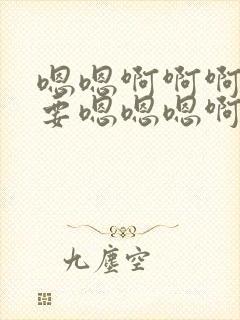 嗯嗯啊啊啊
要嗯嗯嗯啊
九尘空